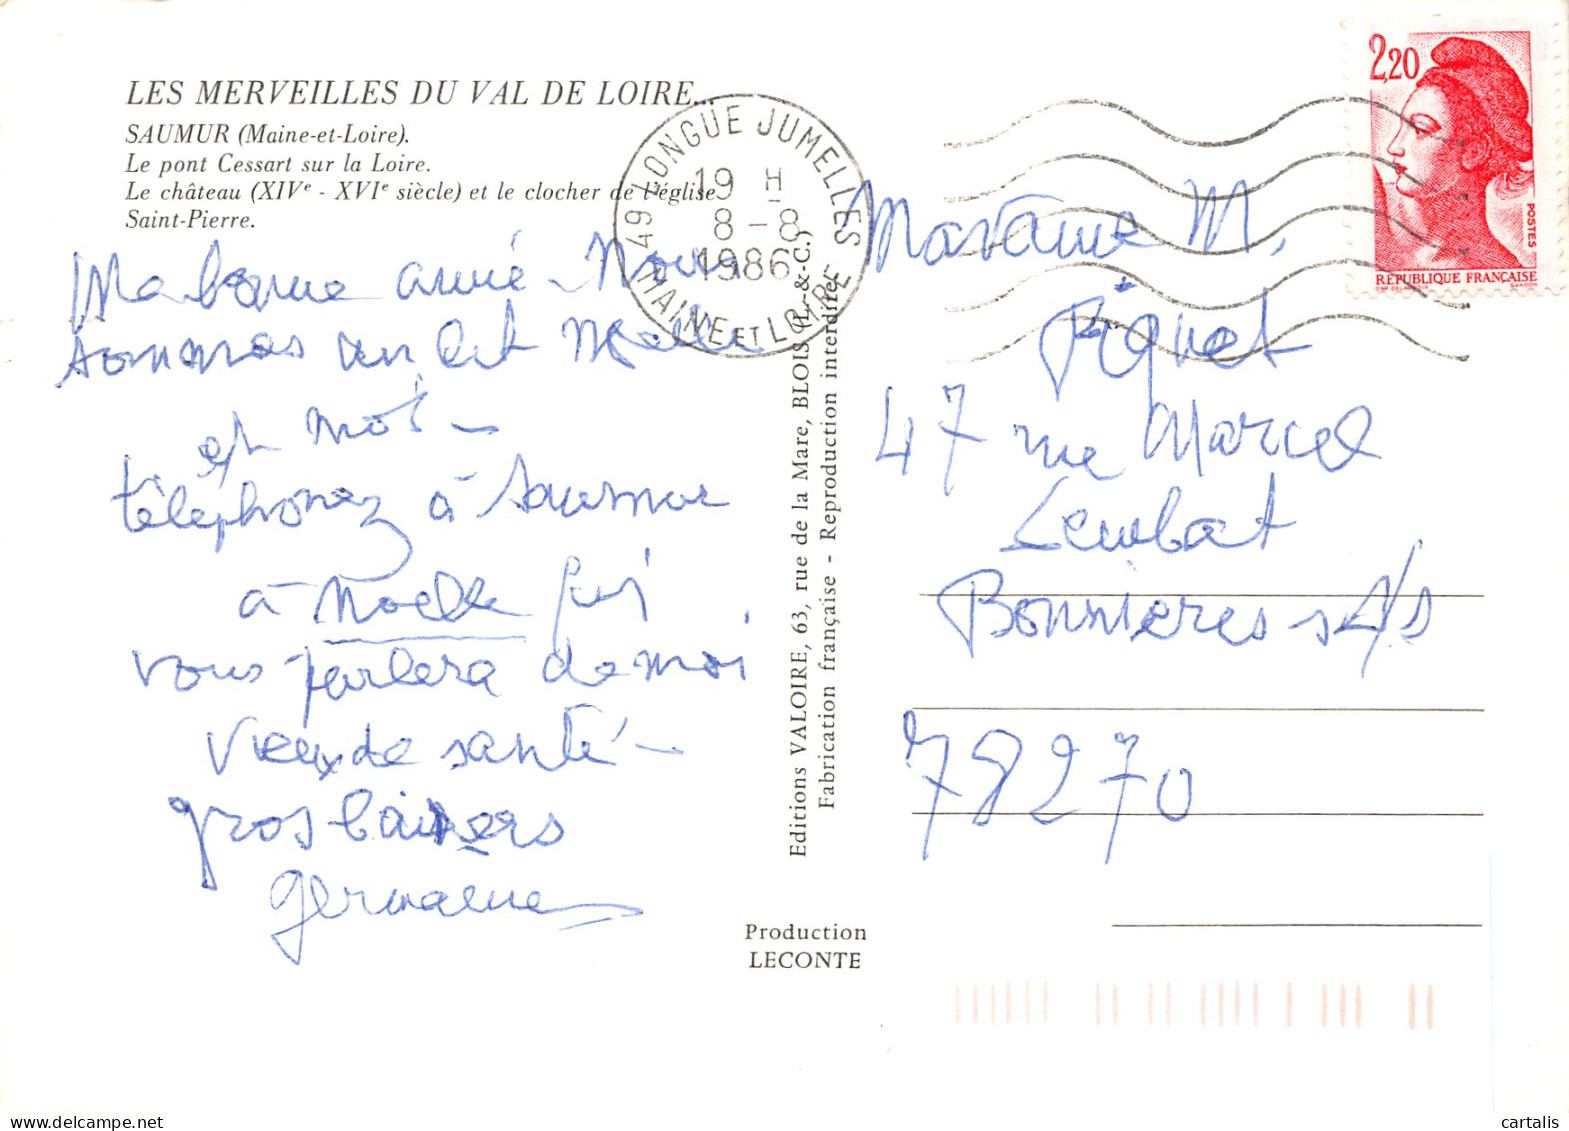 LES MERVEILLES DU VAL DE LOIRE...
SAUMUR (Maine-et-Loire).
Le pont Cessart sur la Loire.
Le château (XIVe - XVIe siècle) et le clocher de l'église
Saint-Pierre.
49 LONGUE JUMELLES
19 H
8 - 8
1986
MAINE ET LOIRE
2,20
POSTES
REPUBLIQUE FRANÇAISE
GANDON
Ma bonne amie Nous
sommes
et moi -
téléphonez à Saumur
à Noelle qui
vous parlera de moi
vieux de santé -
gros baisers
Germaine
Editions VALOIRE, 63, rue de la Mare, BLOIS (L.-&-C.)
Fabrication française - Reproduction interdite
Production
LECONTE
Madame M.
Piquet
47 rue Marcel
Bonnieres s/s
78270
cartalis
delcampe.net